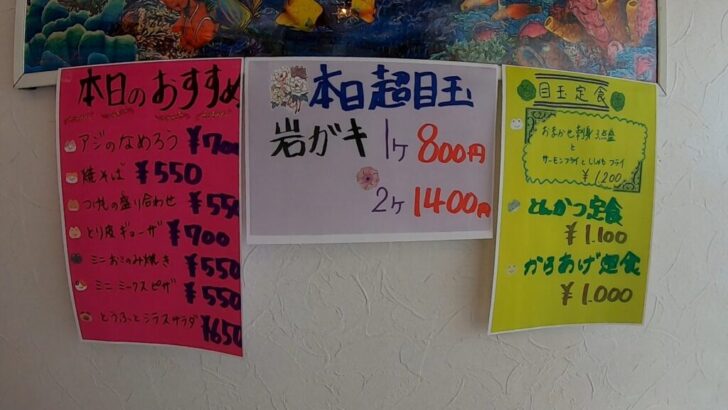 本日のおすすめ
アジのなめろう ¥700
焼そば ¥550
つけもの盛り合わせ ¥550
とり皮ギョーザ ¥700
ミニおこのみ焼き ¥550
ミニミックスピザ ¥550
とうふとシラスサラダ ¥650
本日超目玉
岩ガキ 1ケ 800円
2ケ 1400円
目玉定食
おまかせ刺身3点盛
と
サーモンフライとししゃもフライ
¥1,200
とんかつ定食
¥1.100
からあげ定食
¥1.000